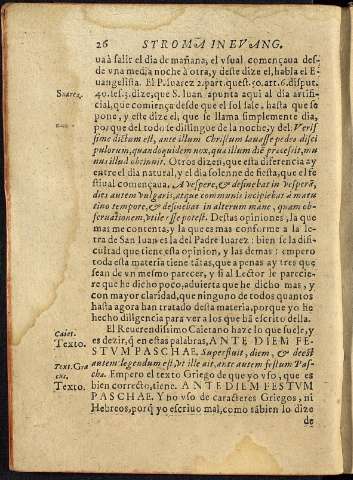 26 STROMA IN EVANG.
uaà salir el dia de mañana, el vsual començaua des-
de vna media noche à otra, y deste dize el, habla el E-
uangelista. El P. Suarez 2. part. quest. 50. art. 6. disput.
Suarez.
40. ses. 3. dize, que S. Iuan apunta aqui al dia artifi-
cial, que comiença desde que el sol sale, hasta que se
pone, y este dize el, que se llama simplemente dia,
porque del todo se distingue de la noche, y del. Veris
sime dictum est, ante illum Christum lauasse pedes disci
pulorum, quandoquidem nox, qua illum diẽ præcesit, nu
nus illud obtinuit. Otros dizen, que esta diferencia ay
entre el dia natural, y el dia solenne de fiesta, que el fe
stiual començaua, A vespere, & desinebat in vesperã,
dies autem vulgaris, atque communis incipiebat à matu
tino tempore, & desinebat in alterum mane, quam ob-
seruationem, vtile esse potest. Destas opiniones, la que
mas me contenta, y la que es mas conforme a la le-
tra de San Iuan es la del Padre Iuarez: bien se la difi-
cultad que tiene esta opinion, y las demas: empero
toda esta materia tiene tãtas, que a penas ay tres que
sean de vn mesmo parecer, y si al Lector le parecie-
re que he dicho poco, aduierta que he dicho mas, y
con mayor claridad, que ninguno de todos quantos
hasta agora han tratado desta materia, porque yo he
hecho diligencia para ver a los que hã escrito della.
El Reuerendissimo Caietano haze lo que suele, y
Caiet.
Texto.
es dezir, q̃ en estas palabras, ANTE DIEM FE-
STVM PASCHAE. Superfluit, diem, & deest
autem legendum est, vt ille ait, ante autem festum Pas-
Text. Gra
cha. Empero el texto Griego de que yo vso, que es
Texto.
bien correcto, tiene. ANTE DIEM FESTVM
PASCHAE. Y no vso de caracteres Griegos, ni
Hebreos, porq̃ yo escriuo mal, como tãbien lo dize
de